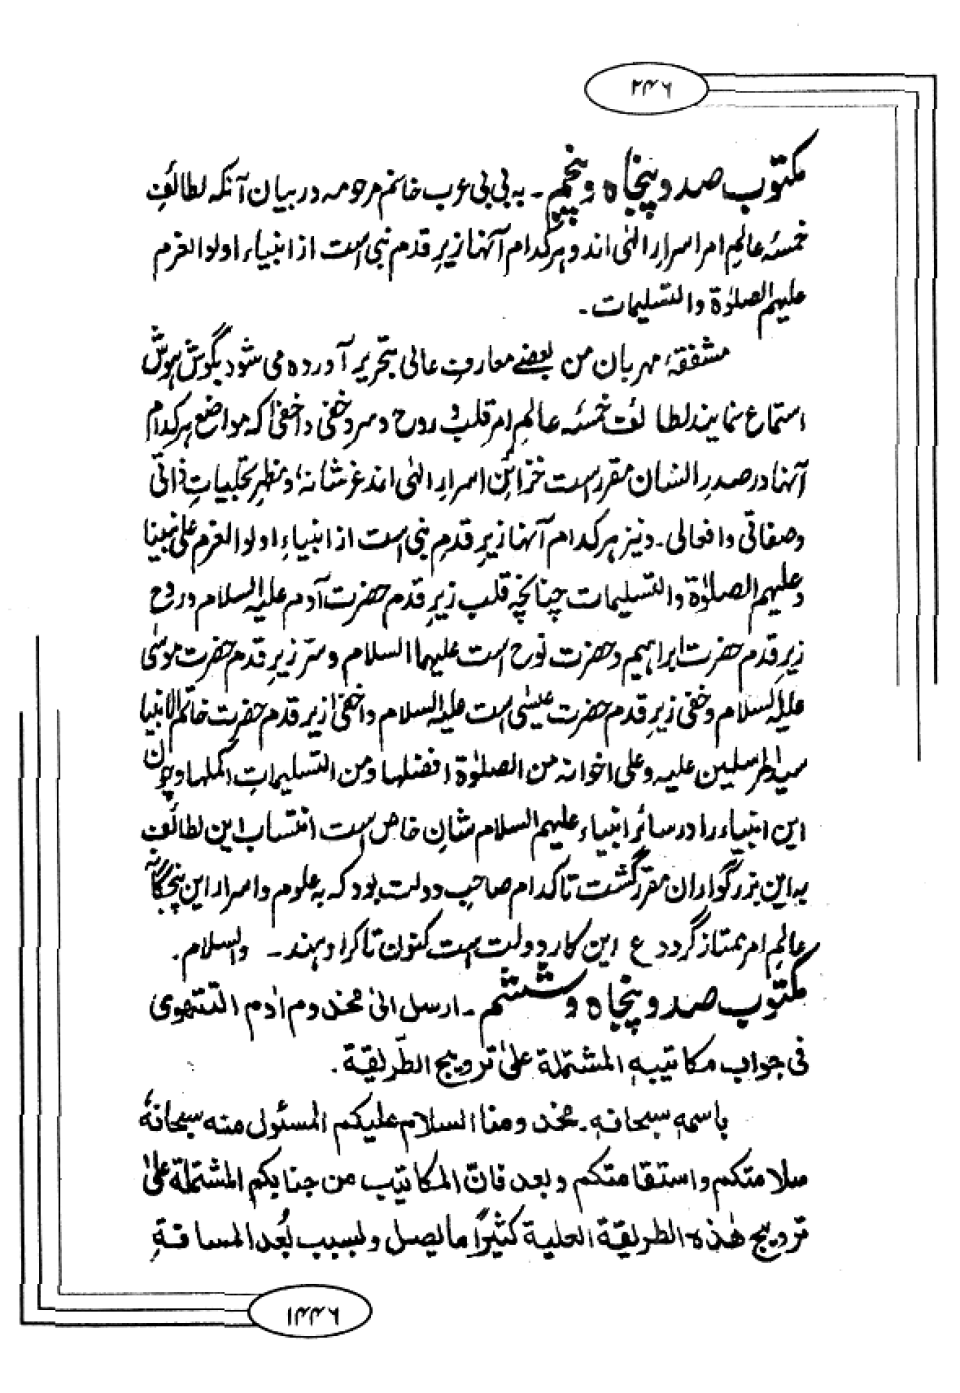 ۲۴۶
مکتوب صد و پنجاه و پنجم ـ به بی بی عرب خانم مرحومه در بیان آنکه لطائف
خمسهٔ عالمِ امر اسرارِ الٰهی اند و هر کدام آنها زیرِ قدم نبی است از انبیاء اولوالعزم
علیهم الصلوٰة والتسلیمات ـ
مشفقهٔ مهربان من بعضے معارفِ عالی بتحریر آورده می شود بگوشِ هوش
استماع نمایند لطائف خمسهٔ عالمِ امر قلب و روح و سر و خفی و اخفیٰ که مواضع هر کدام
آنها در صدرِ انسان مقرر است خزائنِ اسرارِ الٰهی اند عز شانهٗ و مظهرِ تجلیاتِ ذاتی
و صفاتی و افعالی ـ و نیز هر کدام آنها زیرِ قدمِ نبی است از انبیاءِ اولوالعزم علیٰ نبینا
و علیهم الصلوٰة والتسلیمات چنانچه قلب زیرِ قدم حضرت آدم علیه السلام و روح
زیرِ قدم حضرت ابراهیم و حضرت نوح است علیهما السلام و سرّ زیرِ قدم حضرت موسیٰ
علیه السلام و خفی زیرِ قدم حضرت عیسیٰ است علیه السلام و اخفیٰ زیرِ قدم حضرت خاتم الانبیا
سید المرسلین علیه و علی اخوانه من الصلوٰة افضلها و من التسلیماتِ اکملها و چون
این انبیاء را در سائر انبیاء علیهم السلام شانِ خاص است انتساب این لطائف
به این بزرگواران مقرر گشت تا کدام صاحبِ دولت بود که به علوم و اسرار این پنجگانهٔ
عالم امر ممتاز گردد ع این کار دولت است کنون تا کرا دهند ـ والسلام ۔
مکتوب صد و پنجاه و ششم ـ ارسل الیٰ مخدوم ادم التتهوی
فی جواب مکاتیبه المشتملة علیٰ ترویج الطّریقة ۔
باسمهٖ سبحانهٗ ـ مخدومنا السلام علیکم المسئول منه سبحانهٗ
سلامتکم و استقامتکم و بعد فانّ المکاتیب من جنابکم المشتملة علیٰ
ترویج هٰذه الطریقة العلیة کثیرًا ما یصل و لسبب بُعد المسافةِ
۱۴۴۶